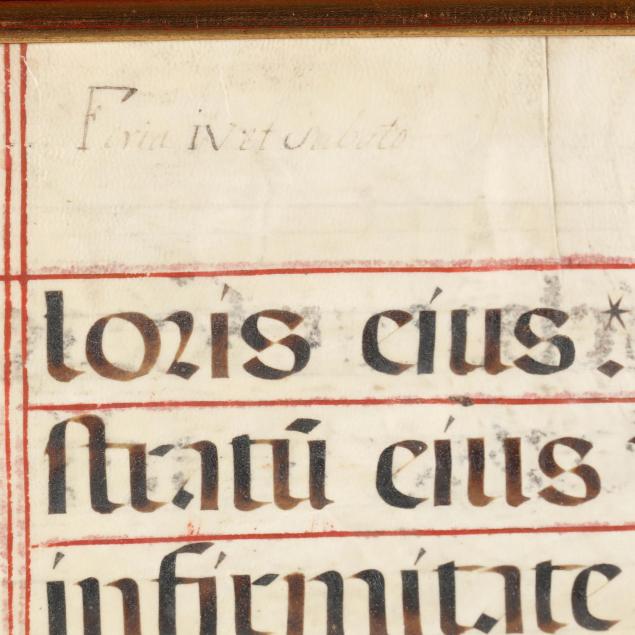 Feria IV et Sabato
loris eius: *
stratū eius
infirmitate